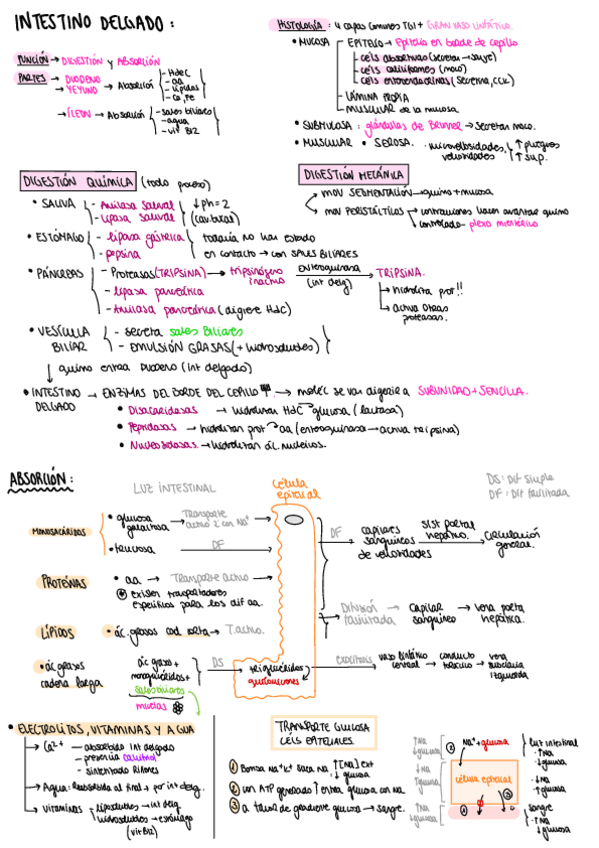 INTESTINO DELGADO:
FUNCIÓN → DIGESTIÓN y ABSORCIÓN
PARTES → DUODENO
→ YEYUNO → Absorción
- HdeC
- aa
- lípidos
- Ca, Fe
→ ÍLEON → Absorción
- sales biliares
- agua
- vit B12
HISTOLOGÍA: 4 capas comunes TGI + GRAN VASO LINFÁTICO.
• MUCOSA
EPITELIO → Epitelio en borde de cepillo
céls absortivas
céls caliciformes (moco)
céls enteroendocrinas (secretina, CCK)
LÁMINA PROPIA
MUSCULAR de la mucosa.
• SUBMUCOSA: glándulas de Brunner → secretan moco.
• MUSCULAR • SEROSA. · microvellosidades, vellosidades
↑ pliegues
↑ sup.
DIGESTIÓN QUÍMICA (todo poroso)
• SALIVA
- Amilasa salival
- lipasa salival
↓ ph = 2
• ESTÓMAGO
- lipasa gástrica
- pepsina
todavía no han estado
en contacto → con SALES BILIARES
• PÁNCREAS
- Proteasas (TRIPSINA) → tripsinógeno inactivo
enteroquinasa
(int delg)
→ TRIPSINA.
→ hidroliza prot!!
→ activa otras proteasas.
- lipasa pancreática
- Amilasa pancreática (digiere HdC)
• VESÍCULA BILIAR
- secreta sales BILIARES
- EMULSIÓN GRASAS (+ hidrosolubles)
↓ quimo entra DUODENO (int delgado)
• INTESTINO DELGADO → ENZIMAS DEL BORDE DEL CEPILLO → moléc se van digerir a SUBUNIDAD + SENCILLA.
• Disacaridasas → hidrolizan HdC → glucosa (lactasa)
• Peptidasas → hidrolizan prot → aa (enteroquinasa → activa tripsina)
• Nucleosidasas → hidrolizan ác. nucleicos.
DIGESTIÓN MECÁNICA
→ mov SEGMENTACIÓN → quimo + mucosa
→ mov PERISTÁLTICOS
contracciones hacen avanzar quimo
controlado → plexo mientérico
ABSORCIÓN:
LUZ INTESTINAL
célula epitelial
DS: Dif simple
DF: Dif facilitada
MONOSACÁRIDOS
• glucosa galactosa → Transporte activo 2º con Na⁺
• fructosa → DF
DF → capilares sanguíneos de vellosidades → sist portal hepático. → circulación general.
PROTEÍNAS
• aa → Transporte activo
existen transportadores
específicos para los dif aa.
Difusión facilitada → capilar sanguíneo → vena porta hepática.
LÍPIDOS
• ác. grasos cad corta → T. activo.
• ác grasos cadena larga
ác graso + monoglicéridos +
sales biliares
micelas
DS
triglicéridos
quilomicrones
exocitosis → vaso linfático central → conducto torácico → vena subclavia izquierda
• ELECTROLITOS, VITAMINAS Y AGUA
→ Ca²⁺
— absorbido int delgado
— presencia calcitriol
— sintetizado Riñones
→ Agua: Reabsorbida al final → por int delg.
→ Vitaminas
liposolubles → int delg
hidrosolubles → estómago
(vit B12)
TRANSPORTE GLUCOSA
CÉLS EPITELIALES.
① Bomba Na⁺K⁺ saca Na ↑[Na] ext
↓ glucosa
② con ATP generado ↑ entra glucosa con Na.
③ a favor de gradiente glucosa → sangre.
↑Na
↓glucosa
↓Na
↑glucosa
↑Na
↓glucosa
② Na⁺ + glucosa
célula epitelial
①
③
luz intestinal
· ↑Na
· ↓glucosa
· ↓Na
· ↑glucosa
sangre
· ↑Na
↓ glucosa